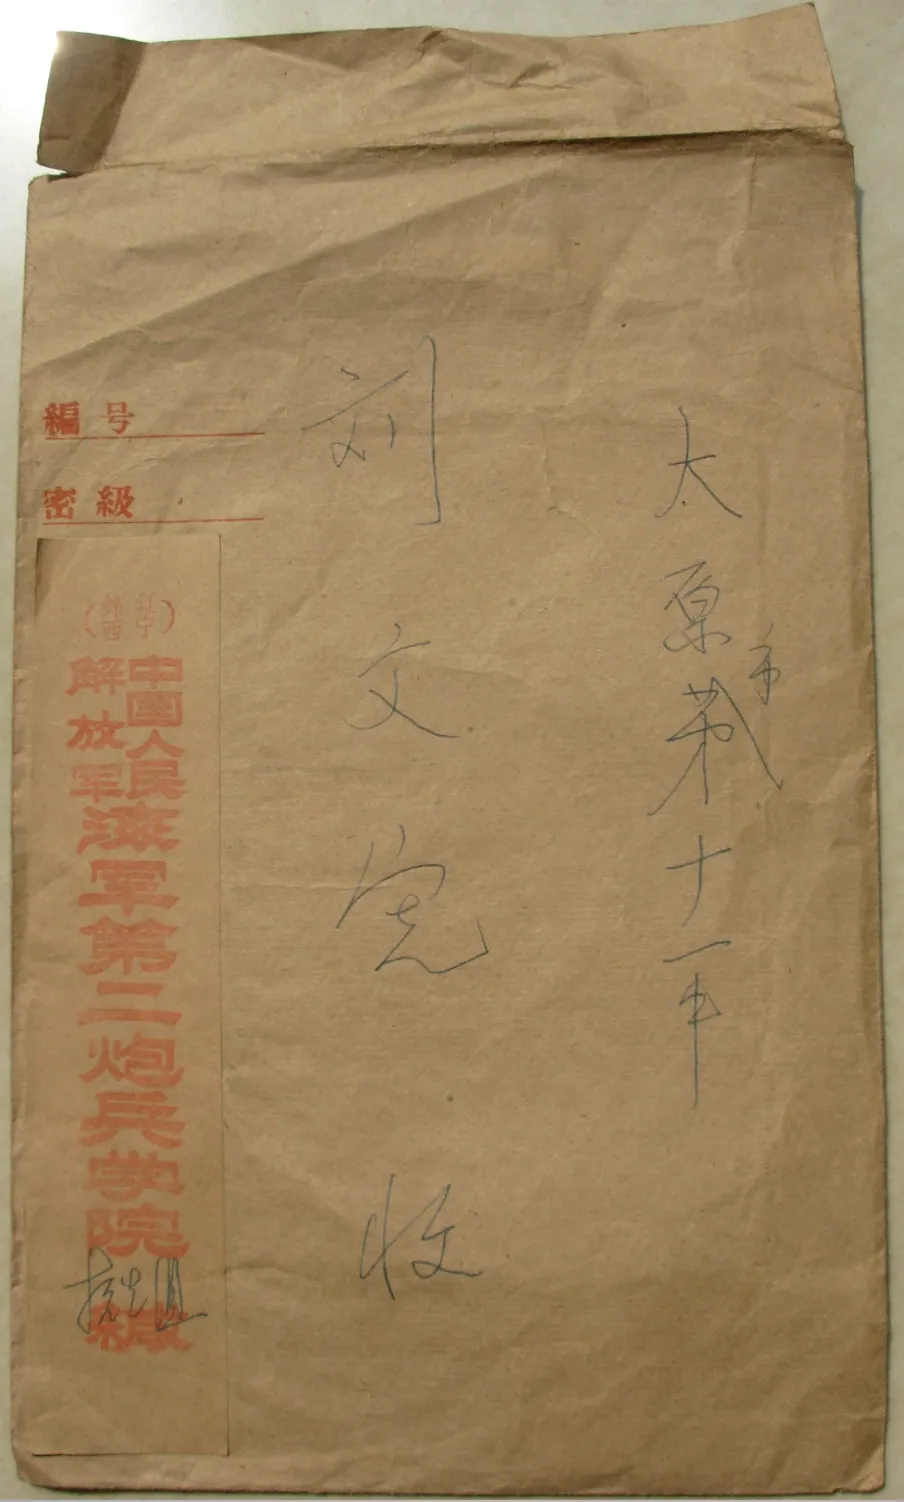 太原市第十一中
刘文宪 收
編号
密級
(辽宁锦西)
中国人民解放军海軍第二炮兵学院緘